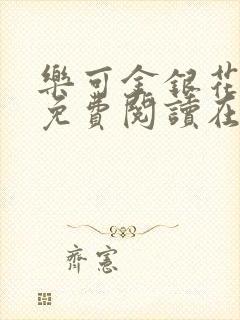 樂可金銀花
免費閱讀在
齊憲